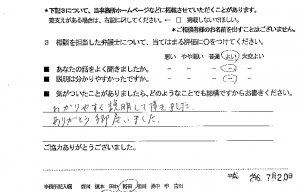 *下記3について、当事務所ホームページなどに掲載させていただくことがあります。
差支えがある場合は、右記に☑してください。← □ 掲載しないでほしい。
*ご相談者様のお名前を出すことはございません。
3 相談を担当した弁護士について、当てはまる評価に○をつけてください。
悪い やや悪い 普通 よい 大変よい
■ あなたの話をよく聞きましたか。
■ 説明は分かりやすかったですか。
■ 気がついたことがありましたら、どのようなことでも結構ですからお書きください。
わかりやすく説明して頂きました。
ありがとう御座いました。
ご協力ありがとうございました。
平成 26年 7月20日